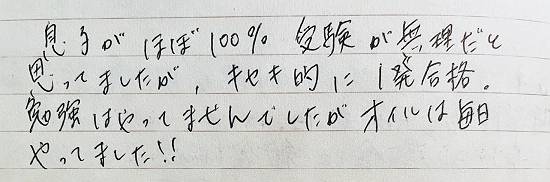 息子がほぼ100% 受験が無理だと
思ってましたが、キセキ的に1発合格。
勉強はやってませんでしたがオイルは毎日
やってました!!